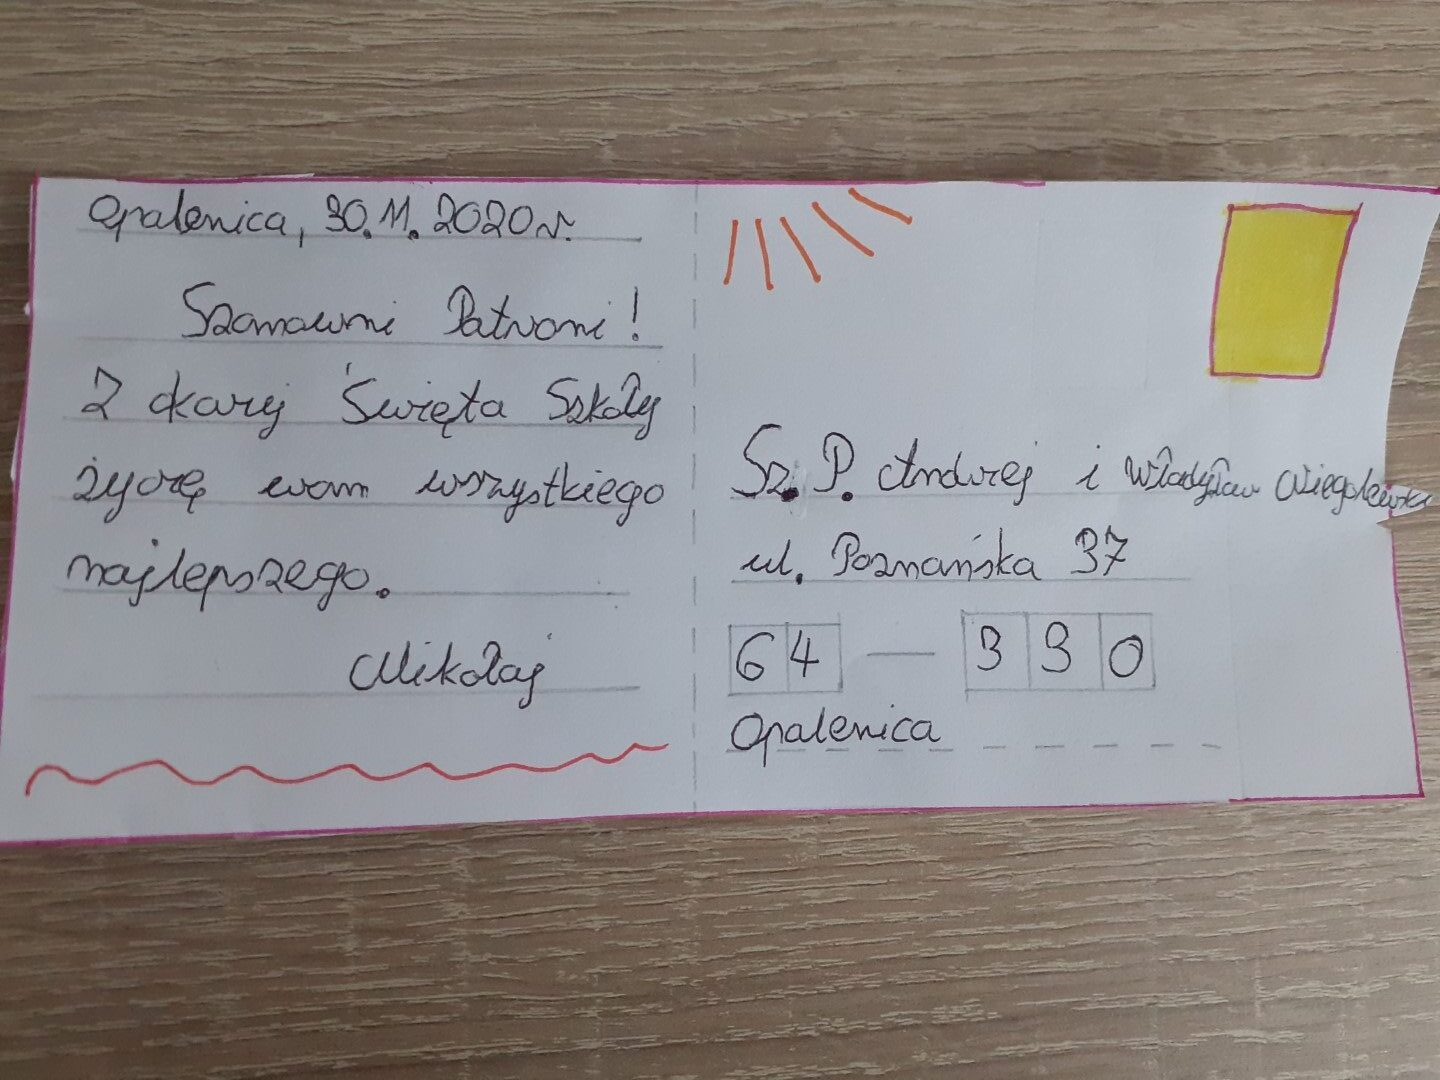 Opalenica, 30.11.2020 r.
Szanowni Patroni!
Z okazji Święta Szkoły
życzę wam wszystkiego
najlepszego.
Mikołaj
Sz. P. Andrzej i Władysław Niegolewscy
ul. Poznańska 37
64 — 330
Opalenica